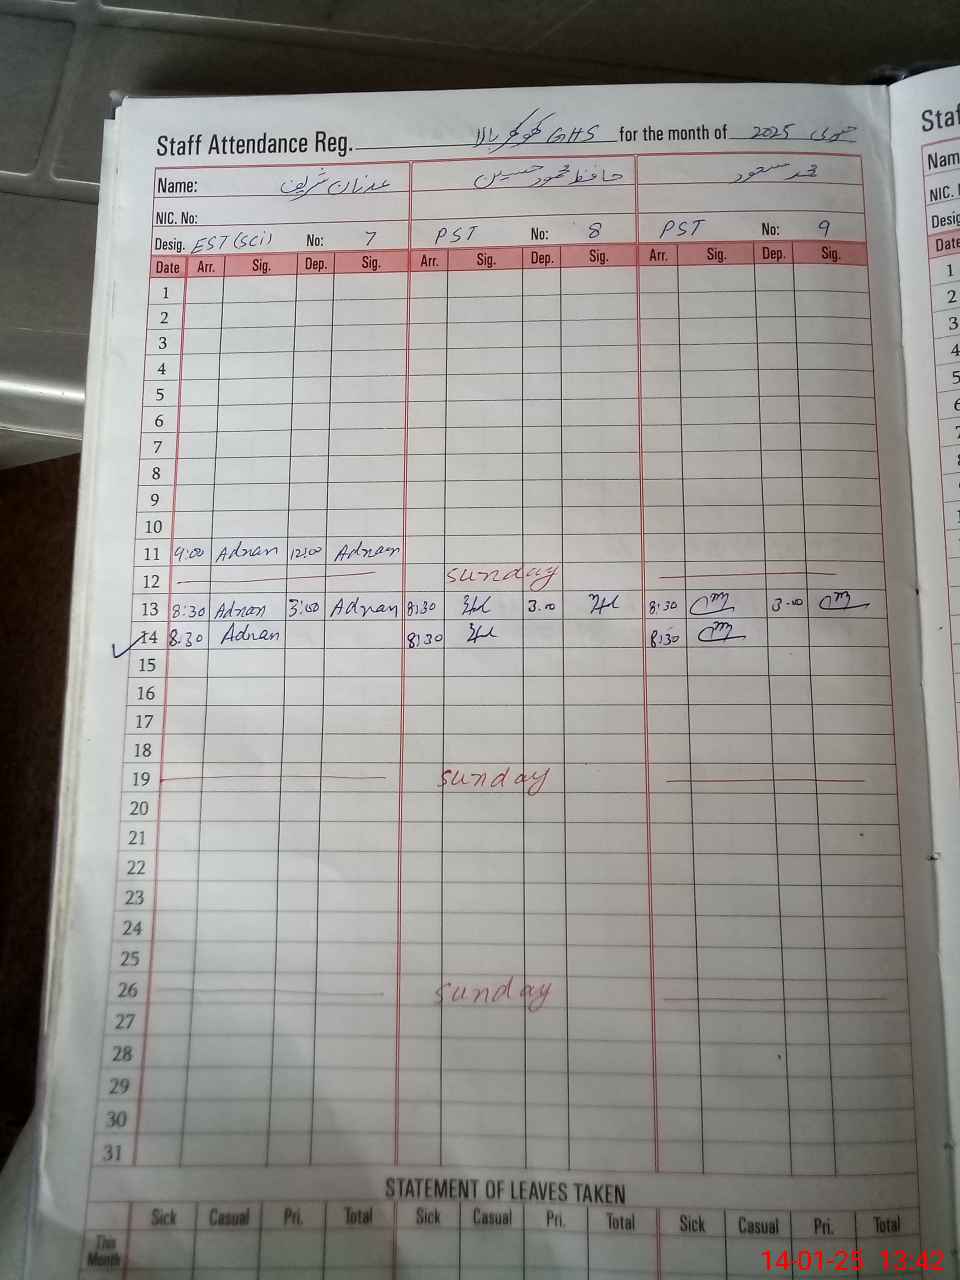 Staff Attendance Reg. GHS ککو بالا for the month of جنوری 2025
Name: عدنان شریف حافظ محمود حسین محمد مسعود
NIC. No:
Desig. EST (Sci) No: 7 PST No: 8 PST No: 9
Date Arr. Sig. Dep. Sig. Arr. Sig. Dep. Sig. Arr. Sig. Dep. Sig.
1
2
3
4
5
6
7
8
9
10
11 9:00 Adnan 12:00 Adnan
12 Sunday
13 8:30 Adnan 3:00 Adnan 8:30 3.00 8:30 3.00
14 8:30 Adnan 8:30 8:30
15
16
17
18
19 Sunday
20
21
22
23
24
25
26 Sunday
27
28
29
30
31
STATEMENT OF LEAVES TAKEN
Sick Casual Pri. Total Sick Casual Pri. Total Sick Casual Pri. Total
This Month
Nam
NIC.
Desig
Date
1
2
3
4
5
6
14-01-25 13:42